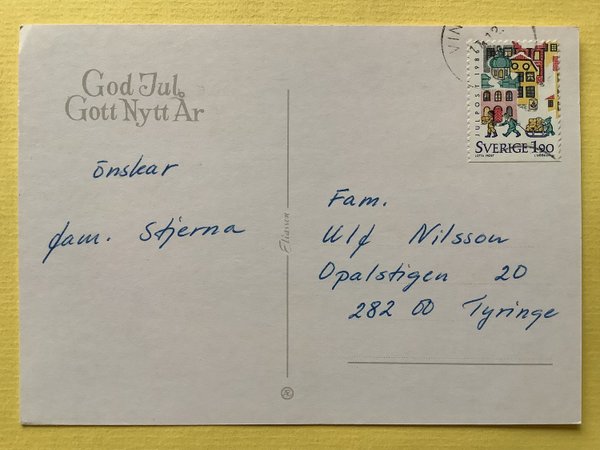 God Jul
Gott Nytt År
önskar
fam. Stjerna
Eliasson
JULPOST 1986
SVERIGE 1.90
Fam.
Ulf Nilsson
Opalstigen 20
282 00 Tyringe